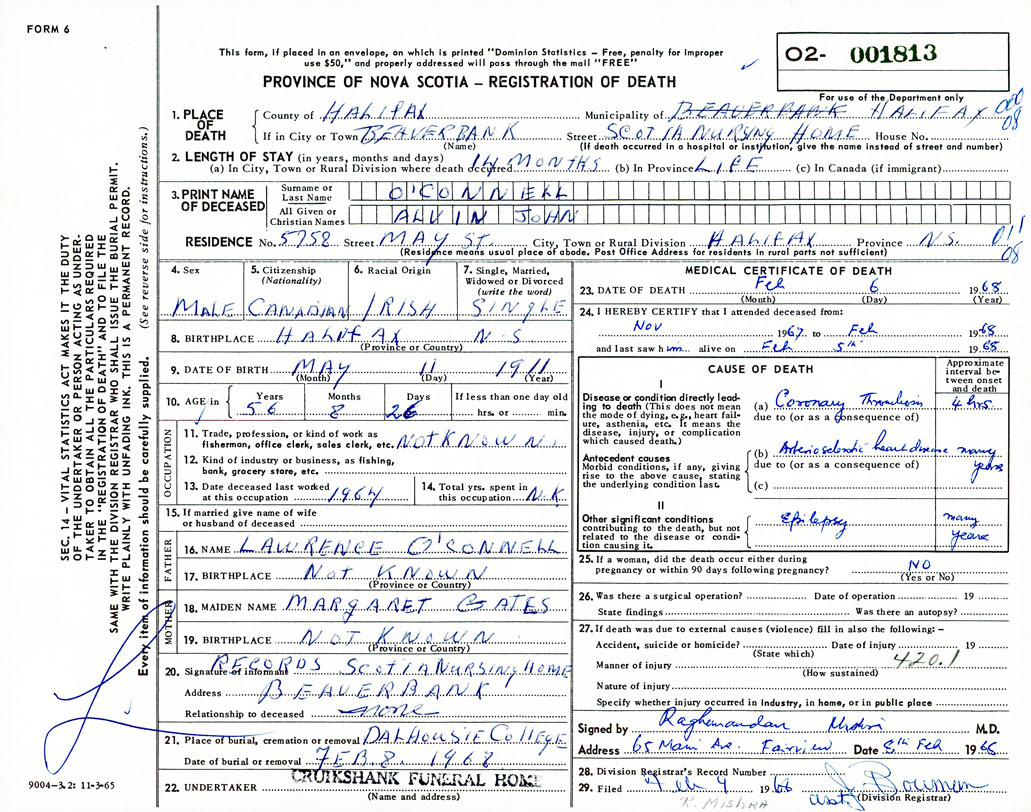 FORM 6
This form, if placed in an envelope, on which is printed "Dominion Statistics – Free, penalty for improper
use $50," and properly addressed will pass through the mail "FREE"
PROVINCE OF NOVA SCOTIA – REGISTRATION OF DEATH
O2- 001813
For use of the Department only
SEC. 14 – VITAL STATISTICS ACT MAKES IT THE DUTY
OF THE UNDERTAKER OR PERSON ACTING AS UNDER-
TAKER TO OBTAIN ALL THE PARTICULARS REQUIRED
IN THE "REGISTRATION OF DEATH" AND TO FILE THE
SAME WITH THE DIVISION REGISTRAR WHO SHALL ISSUE THE BURIAL PERMIT.
WRITE PLAINLY WITH UNFADING INK. THIS IS A PERMANENT RECORD.
Every item of information should be carefully supplied. (See reverse side for instructions.)
1. PLACE OF DEATH
County of HALIFAX Municipality of BEAVERBANK HALIFAX 000
08
If in City or Town BEAVERBANK Street SCOTIA NURSING HOME House No.
(Name) (If death occurred in a hospital or institution, give the name instead of street and number)
2. LENGTH OF STAY (in years, months and days)
(a) In City, Town or Rural Division where death occurred 14 MONTHS (b) In Province LIFE (c) In Canada (if immigrant)
3. PRINT NAME OF DECEASED
Surname or Last Name O'CONNELL
All Given or Christian Names ALVIN JOHN
RESIDENCE No. 5758 Street MAY ST. City, Town or Rural Division HALIFAX Province N.S. 011
08
(Residence means usual place of abode. Post Office Address for residents in rural parts not sufficient)
4. Sex MALE
5. Citizenship (Nationality) CANADIAN
6. Racial Origin IRISH
7. Single, Married, Widowed or Divorced (write the word) SINGLE
8. BIRTHPLACE HALIFAX N.S
(Province or Country)
9. DATE OF BIRTH MAY 11 1911
(Month) (Day) (Year)
10. AGE in Years 56 Months 8 Days 26 If less than one day old hrs. or min.
OCCUPATION
11. Trade, profession, or kind of work as
fisherman, office clerk, sales clerk, etc. NOT KNOWN
12. Kind of industry or business, as fishing,
bank, grocery store, etc.
13. Date deceased last worked
at this occupation 1964
14. Total yrs. spent in
this occupation N.K.
15. If married give name of wife
or husband of deceased
FATHER
16. NAME LAWRENCE O'CONNELL
17. BIRTHPLACE NOT KNOWN
(Province or Country)
MOTHER
18. MAIDEN NAME MARGARET GATES
19. BIRTHPLACE NOT KNOWN
(Province or Country)
20. Signature of informant RECORDS SCOTIA NURSING HOME
Address BEAVERBANK
Relationship to deceased none
21. Place of burial, cremation or removal DALHOUSIE COLLEGE
Date of burial or removal FEB. 8. 1968
22. UNDERTAKER CRUIKSHANK FUNERAL HOME
(Name and address)
9004-3.2: 11-3-65
MEDICAL CERTIFICATE OF DEATH
23. DATE OF DEATH Feb 6 1968
(Month) (Day) (Year)
24. I HEREBY CERTIFY that I attended deceased from:
Nov 1967 to Feb 1968
and last saw him alive on Feb 5th 1968
CAUSE OF DEATH
Approximate interval between onset and death
I
Disease or condition directly lead-
ing to death (This does not mean
the mode of dying, e.g., heart fail-
ure, asthenia, etc. It means the
disease, injury, or complication
which caused death.)
(a) Coronary Thrombosis 4 hrs.
due to (or as a consequence of)
Antecedent causes
Morbid conditions, if any, giving
rise to the above cause, stating
the underlying condition last.
(b) Arteriosclerotic heart disease many years
due to (or as a consequence of)
(c)
II
Other significant conditions
contributing to the death, but not
related to the disease or condi-
tion causing it.
Epilepsy many years
25. If a woman, did the death occur either during
pregnancy or within 90 days following pregnancy? NO
(Yes or No)
26. Was there a surgical operation? Date of operation 19
State findings Was there an autopsy?
27. If death was due to external causes (violence) fill in also the following: –
Accident, suicide or homicide? Date of injury 19
(State which) 420.1
Manner of injury
(How sustained)
Nature of injury
Specify whether injury occurred in industry, in home, or in public place
Signed by M.D.
Address 65 Main Ave. Fairview Date 8th Feb 1968
28. Division Registrar's Record Number
29. Filed 1968 J. Bowman
(Division Registrar)
K. MISHRA